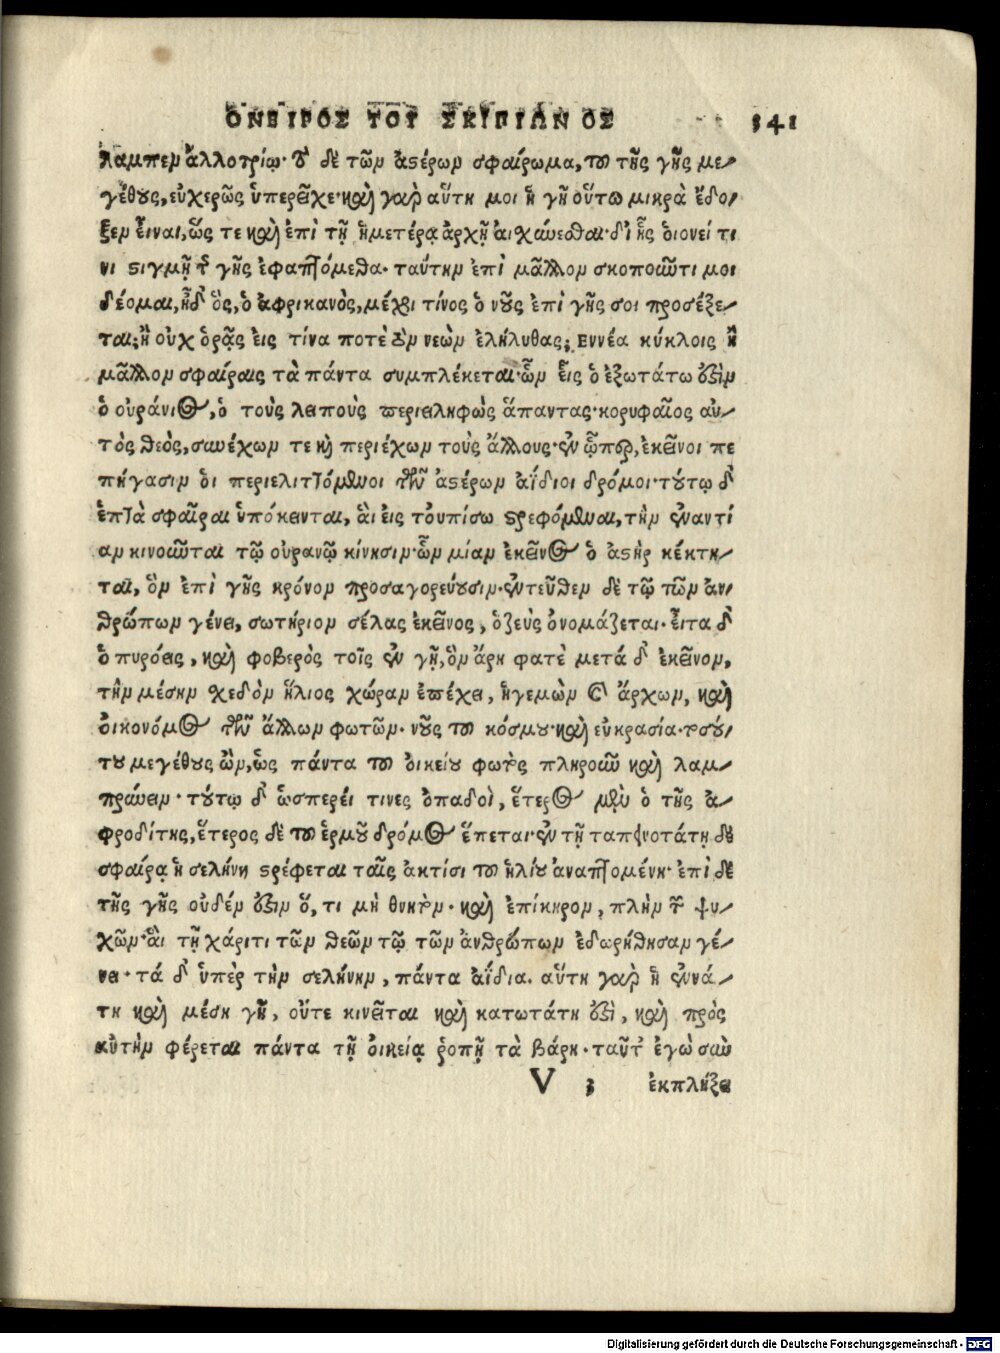 ΟΝΕΙΡΟΣ ΤΟΥ ΣΚΙΠΙΩΝΟΣ 341
λαμπεν ἀλλοτρίῳ· τ͂ δὲ τῶν ἀστέρων σφαίρωμα, τοῦ τῆς γῆς με-
γέθους, εὐχερῶς ὑπερεῖχε· καὶ γὰρ αὕτη μοι ἡ γῆ οὕτω μικρὰ ἔδο-
ξεν εἶναι, ὥς τε καὶ ἐπὶ τῇ ἡμετέρᾳ ἀρχῇ αἰσχύνεσθαι· δι᾽ ἧς ὁιονεί τι
νι στιγμῇ τ͂ γῆς ἐφαπτόμεθα. ταύτην ἐπὶ μᾶλλον σκοποῦντι μοι
δέομαι, ἦ δ᾽ ὃς, ὁ ἀφρικανὸς, μέχρι τίνος ὁ νοῦς ἐπὶ γῆς σοι προσέξε-
ται; ἢ οὐχ ὁρᾷς εἰς τίνα ποτὲ τὸν νεὼν ἐλήλυθας; Εννέα κύκλοις ἢ
μᾶλλον σφαίραις τὰ πάντα συμπλέκεται· ὧν εἷς ὁ ἐξωτάτω ἐστὶν
ὁ οὐράνιος, ὁ τοὺς λειποὺς περιειληφὼς ἅπαντας· κορυφαῖος αὐ-
τὸς θεὸς, συνέχων τε καὶ περιέχων τοὺς ἄλλους· ἐν ᾧπερ, ἐκεῖνοι πε
πήγασιν ὁι περιελιττόμενοι τῶν ἀστέρων ἀΐδιοι δρόμοι· τούτῳ δ᾽
ἑπτὰ σφαῖραι ὑπόκεινται, ἃι εἰς τοὐπίσω στρεφόμεναι, τὴν ἐναντί
αν κινοῦνται τῷ οὐρανῷ κίνησιν· ὧν μίαν ἐκεῖνος ὁ ἀστὴρ κέκτη-
ται, ὃν ἐπὶ γῆς κρόνον προσαγορεύουσιν· ἐντεῦθεν δὲ τῷ τῶν ἀν-
θρώπων γένει, σωτήριον σέλας ἐκεῖνος, ὁ ζεὺς ὀνομάζεται· εἶτα δ᾽
ὁ πυρόεις, καὶ φοβερὸς τοῖς ἐν γῇ, ὃν ἄρη φατὲ μετά δ᾽ ἐκεῖνον,
τὴν μέσην σχεδὸν ἥλιος χώραν ἐπέχει, ἡγεμὼν καὶ ἄρχων, καὶ
ὀικονόμος τῶν ἄλλων φωτῶν· νοῦς τοῦ κόσμου· καὶ εὐκρασία· τοσού-
του μεγέθους ὢν, ὡς πάντα τοῦ ὀικείου φωτὸς πληροῦν καὶ λαμ-
πρύνειν· τούτῳ δ᾽ ὡσπερεί τινες ὀπαδοὶ, ἕτερος μὲν ὁ τῆς ἀ-
φροδίτης, ἕτερος δὲ τοῦ ἑρμοῦ δρόμος ἕπεται· ἐν τῇ ταπεινοτάτῃ δὲ
σφαίρᾳ ἡ σελήνη στρέφεται ταῖς ἀκτίσι τοῦ ἡλίου ἀναπτομένη· ἐπὶ δὲ
τῆς γῆς οὐδέν ἐστιν ὅ, τι μὴ θνητὸν· καὶ ἐπίκηρον, πλὴν τ͂ ψυ-
χῶν· ἃι τῇ χάριτι τῶν θεῶν τῷ τῶν ἀνθρώπων ἐδωρήθησαν γέ-
νει· τά δ᾽ ὑπὲρ τὴν σελήνην, πάντα ἀΐδια. αὕτη γὰρ ἡ ἐννά-
τη καὶ μέση γῆ, οὔτε κινεῖται καὶ κατωτάτη ἐστὶ, καὶ πρὸς
αὐτὴν φέρεται πάντα τῇ ὀικείᾳ ῥοπῇ τὰ βάρη· ταῦτ᾽ ἐγὼ σὺν
V 3 ἐκπλήξει
Digitalisierung gefördert durch die Deutsche Forschungsgemeinschaft - DFG